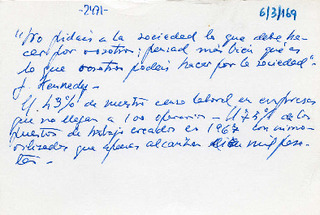 -2471-
6/3/169
"No pidais a la sociedad lo que debe ha-
cer por vosotros; pensad más bien qué es
lo que vosotros podeis hacer por la sociedad".
J. Kennedy.-
El 43% de nuestro censo laboral, en empresas
que no llegan a 100 operarios.- El 75% de los
puestos de trabajo creados en 1967 con inmo-
vilizados que apenas alcanzan mil pese-
tas.-